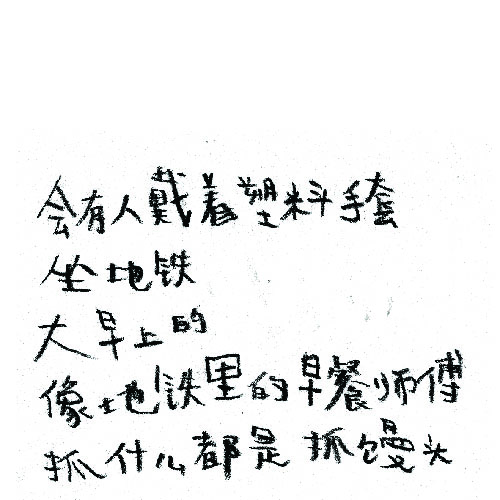 会有人戴着塑料手套
坐地铁
大早上的
像地铁里的早餐师傅
抓什么都是抓馒头